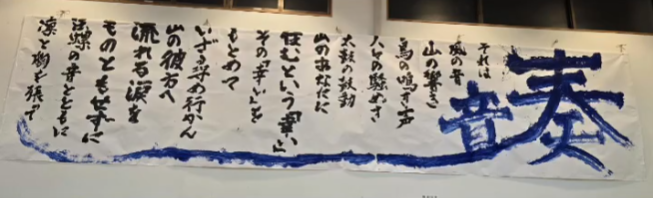 奏音
それは
風の音
山の響き
鳥の鳴き声
人々の騒めき
太鼓の鼓動
山のあなたに
住むという「幸い」
その「幸い」を
もとめて
いざ尋め行かん
山の彼方へ
流れる涙を
ものともせずに
法螺の音とともに
凛と胸を張って